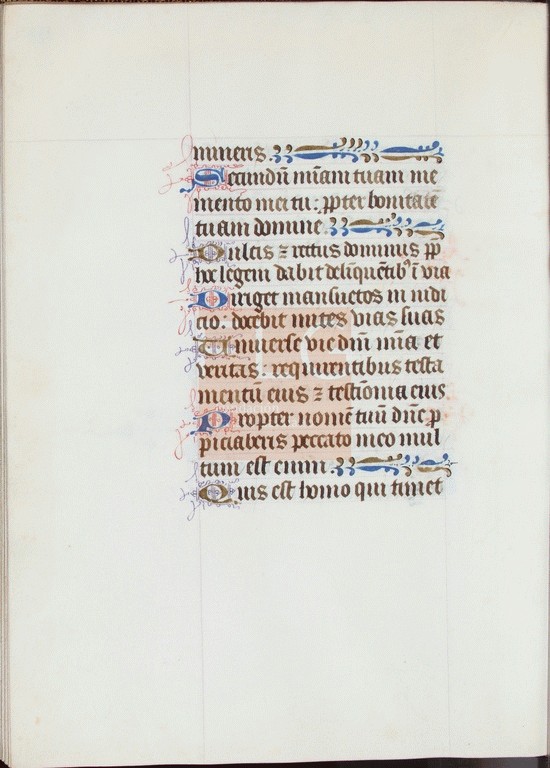 mineris.
Secundū mīam tuam me
mento mei tu: ꝓpter bonitatē
tuam domine.
Dulcis ⁊ rectus dominus ꝓp
hoc legem dabit delīquētibꝰ ī via
Diriget mansuetos in iudi
cio: docebit mites vias suas
Uniuerse vie dn̄i mīa et
veritas: requirentibus testa
mentū eius ⁊ testīonia eius
Propter nomē tuū dn̄e ꝓ
piciaberis peccato meo mul
tum est enim.
Quis est homo qui timet